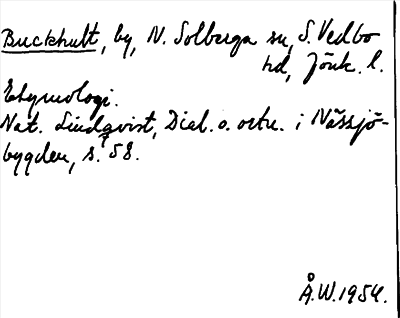 Buckhult, by, N. Solberga sn, S. Vedbo
hd, Jönk. l.
Etymologi.
Nat. Lindqvist, Dial. o. ortn. i Nässjö-
bygden, s. 58.
Å.W. 1954.